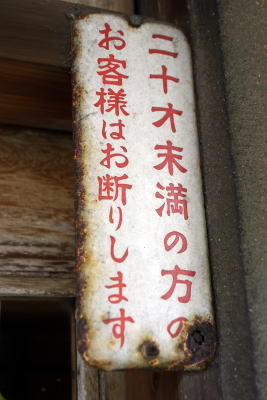 二十才未満の方の
お客様はお断りします